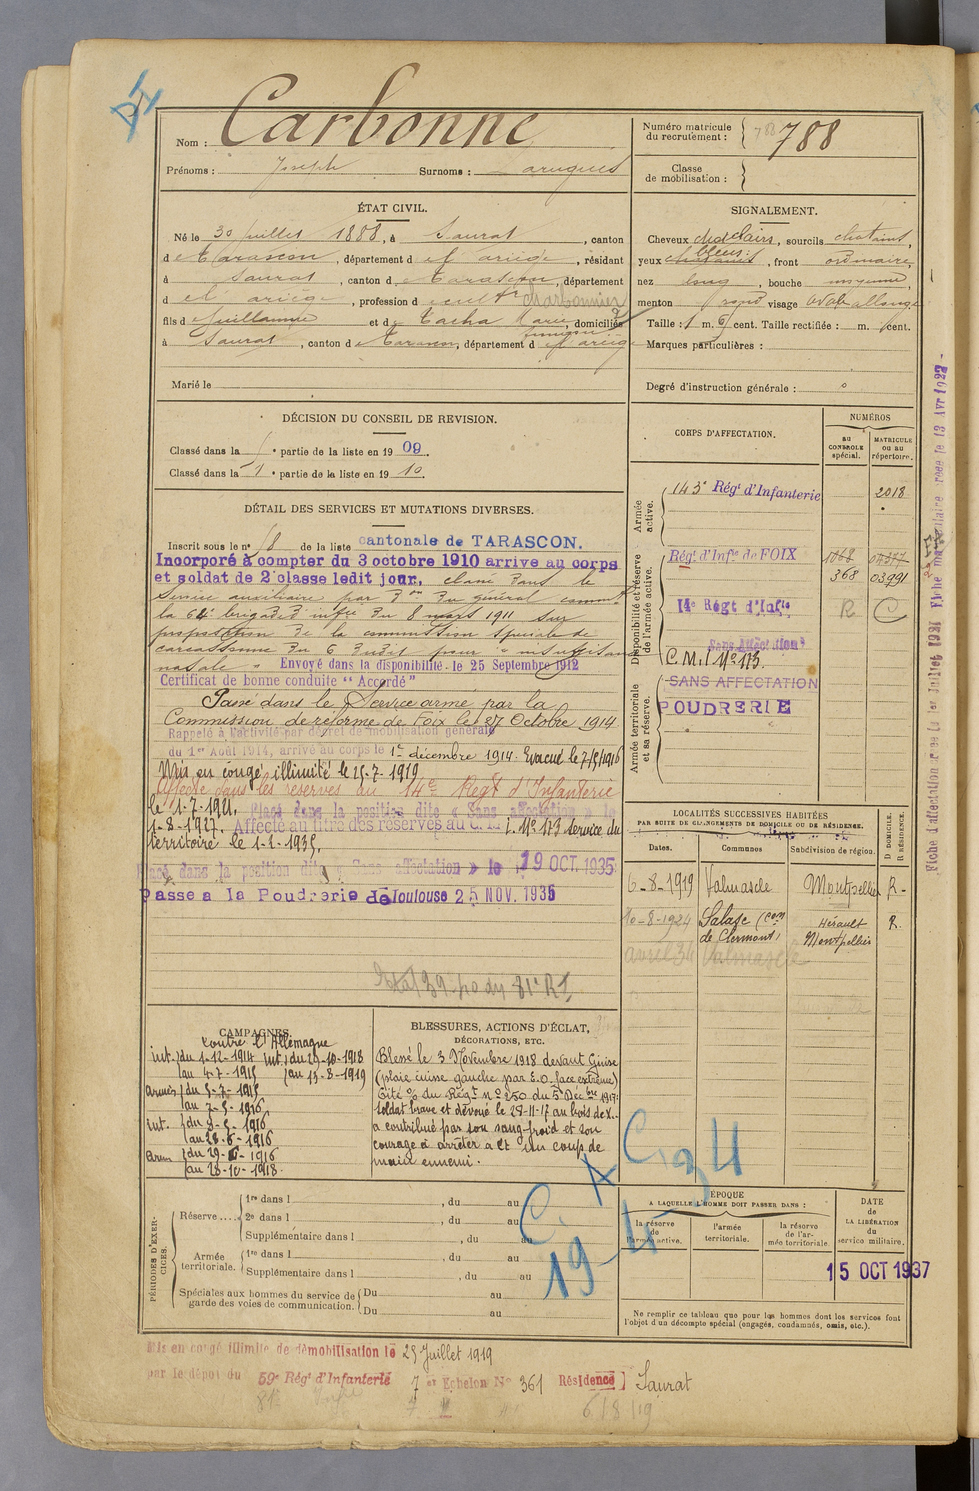 Nom : Carbonne
Numéro matricule du recrutement : 788
Prénoms : Joseph Surnoms :
Classe de mobilisation :
ÉTAT CIVIL.
Né le 30 juillet 1888, à Saurat, canton
de Tarascon, département de l'ariège, résidant
à Saurat, canton de Tarascon, département
de l'ariège, profession de cult charbonnier
fils de Guillaume et de Tacha Marie, domiciliés
à Saurat, canton de Tarascon, département de l'ariège
Marié le
SIGNALEMENT.
Cheveux chat clairs, sourcils chatains,
yeux bleus, front ordinaire,
nez long, bouche moyenne,
menton rond visage ovale allongé
Taille : 1 m. cent. Taille rectifiée : m. cent.
Marques particulières :
Degré d'instruction générale :
DÉCISION DU CONSEIL DE REVISION.
Classé dans la e partie de la liste en 1909.
Classé dans la 1 e partie de la liste en 1910.
DÉTAIL DES SERVICES ET MUTATIONS DIVERSES.
Inscrit sous le n° 18 de la liste cantonale de TARASCON.
Incorporé à compter du 3 octobre 1910 arrive au corps
et soldat de 2e classe ledit jour, classé dans le
Service auxiliaire par du général
la 64e brigade d'infie du 8 mars 1911 sur
proposition de la commission spéciale de
carcassonne du 6 dudit pour "insuffisance
nasale" Envoyé dans la disponibilité le 25 Septembre 1912
Certificat de bonne conduite "Accordé"
Passé dans le Service armé par la
Commission de réforme de Foix le 27 Octobre 1914
Rappelé à l'activité par décret de mobilisation générale
du 1er Août 1914, arrivé au corps le 1er décembre 1914. Evacué le 7/5/1916
Mis en congé illimité le 25-7-1919
Affecté dans les réserves au 14e Regt d'Infanterie
le 1-7-1921. Placé dans la position dite « Sans affectation » le
1-8-1927. Affecté au titre des réserves au C.M.I. N° 173 service du
territoire le 1-1-1935.
Placé dans la position dite « Sans affectation » le 19 OCT. 1935
Passé à la Poudrerie de Toulouse 25 NOV. 1935
CORPS D'AFFECTATION.
NUMÉROS
au CONTROLE spécial.
MATRICULE ou au répertoire.
Armée active.
143e Régt d'Infanterie 2018
Disponibilité et réserve de l'armée active.
Régt d'Infie de FOIX 1068 04377
368 03991
14e Régt d'Infie R C
Sans Affectation
C.M.I N° 173.
Armée territoriale et sa réserve.
SANS AFFECTATION
POUDRERIE
LOCALITÉS SUCCESSIVES HABITÉES
PAR SUITE DE CHANGEMENTS DE DOMICILE OU DE RÉSIDENCE.
Dates. Communes Subdivision de région. D DOMICILE. R RÉSIDENCE.
6-8-1919 Valmascle Montpellier R-
10-8-1924 Salasc (con de Clermont) Hérault Montpellier R.
avril 34 Valmascle
CAMPAGNES.
Contre l'Allemagne
int. du 1-12-1914 au 4-7-1915
int. du 29-10-1918 au 13-8-1919
armées du 5-7-1915 au 7-5-1916
int. du 8-5-1916 au 28-6-1916
du 29-6-1916 au 28-10-1918.
BLESSURES, ACTIONS D'ÉCLAT,
DÉCORATIONS, ETC.
Blessé le 3 Novembre 1918 devant Guise
(plaie cuisse gauche par E.O. face extrême)
Cité % du Régt n° 250 du 5 Décbre 1917:
soldat brave et dévoué le 28-11-17 au bois de X..
a contribué par son sang-froid et son
courage à arrêter à et un coup de
main ennemi.
C. A C. 34
19-
PÉRIODES D'EXERCICES.
Réserve.... 1re dans l , du au
2e dans l , du au
Supplémentaire dans l , du au
Armée territoriale. 1re dans l , du au
Supplémentaire dans l , du au
Spéciales aux hommes du service de garde des voies de communication. Du au
Du au
ÉPOQUE
A LAQUELLE L'HOMME DOIT PASSER DANS :
la réserve de l'armée active.
l'armée territoriale.
la réserve de l'armée territoriale.
DATE de LA LIBÉRATION du service militaire.
15 OCT 1937
Ne remplir ce tableau que pour les hommes dont les services font
l'objet d'un décompte spécial (engagés, condamnés, omis, etc.).
Mis en congé illimité de démobilisation le 25 Juillet 1919
par le dépôt du 59e Régt d'Infanterie 7 e Echelon N° 361 Résidence Saurat
6/8/19